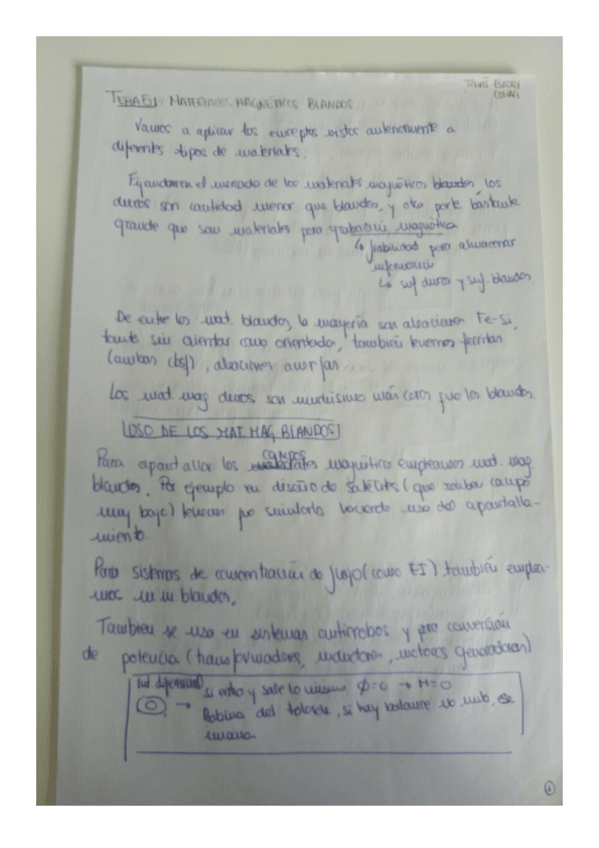 TEMA : MATERIALES MAGNÉTICOS BLANDOS.
Vamos a aplicar los conceptos vistos anteriormente a
diferentes tipos de materiales.
Fijándonos en el mercado de los materiales magnéticos blandos, los
duros son cantidad menor que blandos, y otra parte bastante
grande que son materiales para grabación magnética
↳ fiabilidad para almacenar
información
↳ sup duros y sup. blandos.
De entre los mat. blandos, la mayoría son aleaciones Fe-Si,
tanto sin orientar como orientado, también tenemos ferritas
(ambas ), aleaciones amorfas
Los mat mag duros son muchísimo más caros que los blandos.
USO DE LOS MAT. MAG. BLANDOS
Para apantallar los campos magnético empleamos mat. mag.
blandos. Por ejemplo en diseño de satélites (que campo
muy bajo) tenemos que simularlo haciendo uso del apantalla-
miento.
Para sistemas de concentración de flujo (como EI) también emplea-
mos m m blandos.
También se usa en sistemas antirrobos y pro conversión
de potencia (transformadores, inductores, motores generadores)
Int. diferencial si entra y sale lo mismo Φ=0 → M=0
→ Bobina del toroide, si hay balance no , se
imana
1